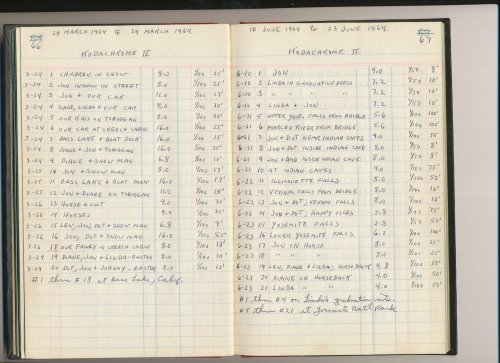 66
24 MARCH 1964 to 29 MARCH 1964.
KODACHROME II
3-24 1 CHILDREN IN SNOW 8.0 1/100 25'
3-24 2 JON IN SNOW IN STREET 8.0 1/100 25'
3-24 3 JON + OUR CAR 11.0 1/100 17'
3-24 4 DIANE, LINDA + OUR CAR 8.0 1/100 30'
3-24 5 OUR KIDS ON TOBOGGAN 8.0 1/100 25'
3-24 6 OUR CAR AT CREECH CABIN 16.0 1/100 25'
3-24 7 BASS LAKE + BOAT DOCK 16.0 1/100 15'
3-24 8 DIANE + JON + TOBOGGAN 16.0 1/100 35'
3-24 9 DIANE + SNOW MAN 6.8 1/100 10'
3-25 10 JON + SNOW MAN 8.0 1/100 17'
3-25 11 BASS LAKE + BOAT DOCK 16.0 1/100 17'
3-25 12 JON + DIANE ON TOBOGGAN 11.0 1/100 25'
3-26 13 HORSE + COLT 9.0 1/100 30'
3-26 14 HORSES 9.0 1/100 30'
3-26 15 LEW, JON, DOT + SNOW MAN 6.8 1/100 9'
3-26 16 JON, DOT + SNOW MAN 16.0 1/100
3-26 18 OUR FAMILY IN CREECH CABIN 8.0 1/100 18'
3-29 19 DIANE, JON + LINDA - EASTER 8.0 1/100 10'
3-29 20 DOT, JON + JOHNNY - EASTER 8.0 1/100 12'
#1 thru #18 at Bass Lake, Calif.
67
10 JUNE 1964 to 23 JUNE 1964.
KODACHROME II
6-10 1 JON 9.0 1/50 8'
6-10 2 LINDA IN GRADUATION DRESS 7.2 1/50 8'
6-10 3 " " " 7.2 1/50 10'
6-10 4 LINDA + JON 7.2 1/50 10'
6-21 5 UPPER YOSE. FALLS FROM BRIDGE 5.6 1/100
6-21 6 MERCED RIVER FROM BRIDGE 5.6 1/100
6-21 7 JON + DOT NEAR INDIAN CAVES 9.0 1/100 50'
6-21 8 JON + DOT INSIDE INDIAN CAVE 8.0 1/50 8'
6-21 9 JON + DAD INSIDE INDIAN CAVE 8.0 1/50 8'
6-21 10 AT INDIAN CAVES 4.0 1/100 75'
6-22 11 ILLILOUETTE FALLS 8.0 1/100 50'
6-22 12 VERNAL FALLS FROM BRIDGE 8.0 1/100
6-22 13 JON + DOT, VERNAL FALLS 8.0 1/100 18'
6-22 14 JON + DOT, HAPPY ISLES 2.8 1/100 75'
6-23 15 YOSEMITE FALLS 2.8 1/100 50'
6-23 16 LOWER YOSEMITE FALLS 6.2 1/100
6-23 17 JON ON HORSE 8.0 1/100 25'
6-23 18 " " " 8.0 1/100 25'
6-23 19 LEW, DIANE + LINDA, HORSEBACK 4.8 1/100 50'
6-23 20 DIANE ON HORSEBACK 4.0 1/100 50'
6-23 21 LINDA " " 4.0 1/100 50'
#1 thru #4 on Linda's graduation nite.
#5 thru #21 at Yosemite Nat'l Park.